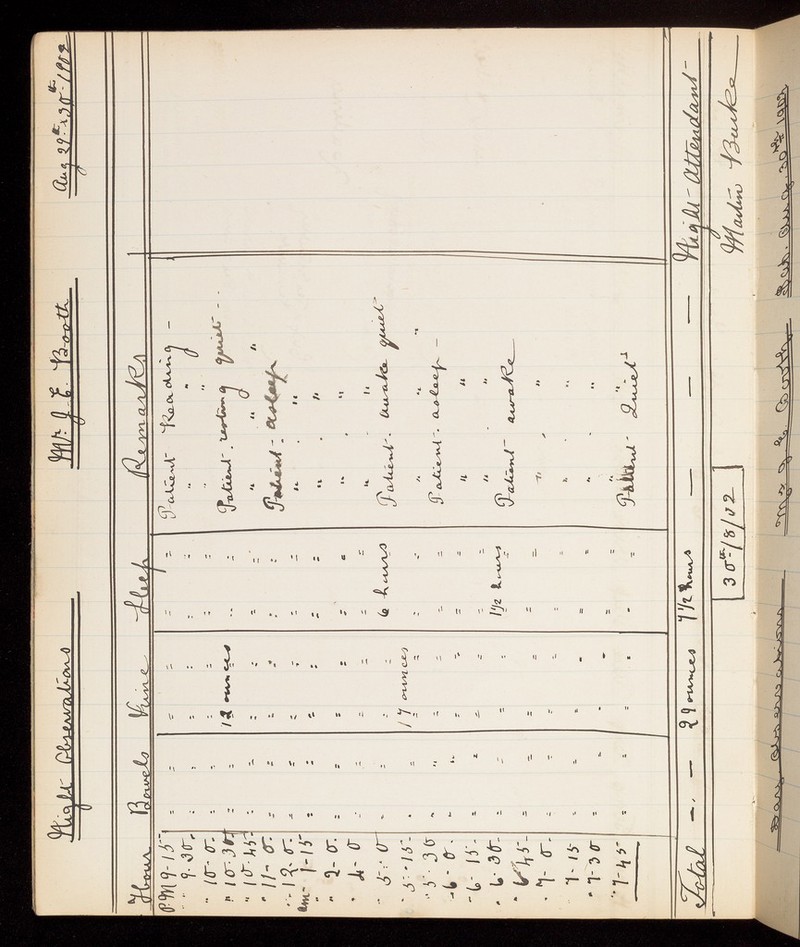 Night Observations Mr J. E. Booth Aug 29th & 30th 1902
Hour Bowels Urine Sleep Remarks
P.M 9-15 " " " " " " Patient Reading -
" 9-30. " " " " " " " "
" 10-0. " " " " " " " "
" 10-30 " " 12 ounces " " Patient. resting quiet - - -
" 10-45 " " " " " " " " "
" 11-0. " " " " " " Patient. asleep
" 12-0. " " " " " " " "
am 1-15 " " " " " " " "
" 2-0. " " " " " " " "
" 4-0 " " " " " " " "
" 5-0 " " " " 6 hours Patient. awake quiet
" 5-15- " " 17 ounces " " " " "
" 5-30 " " " " " " Patient. asleep -
" 6-0. " " " " " " " "
" 6-15- " " " " " " " "
" 6-30- " " " " 1½ hours Patient awake
" 6-45- " " " " " " " "
" 7-0. " " " " " " " "
" 7-15 " " " " " " " "
" 7-30 " " " " " " " "
" 7-45- " " " " " " Patient Quiet
Total - - 29 ounces 7½ hours - - - Night-Attendant-
30th/8/02 Martin Burke
Day Observations Mr J E Booth Sat. Aug 30th 1902